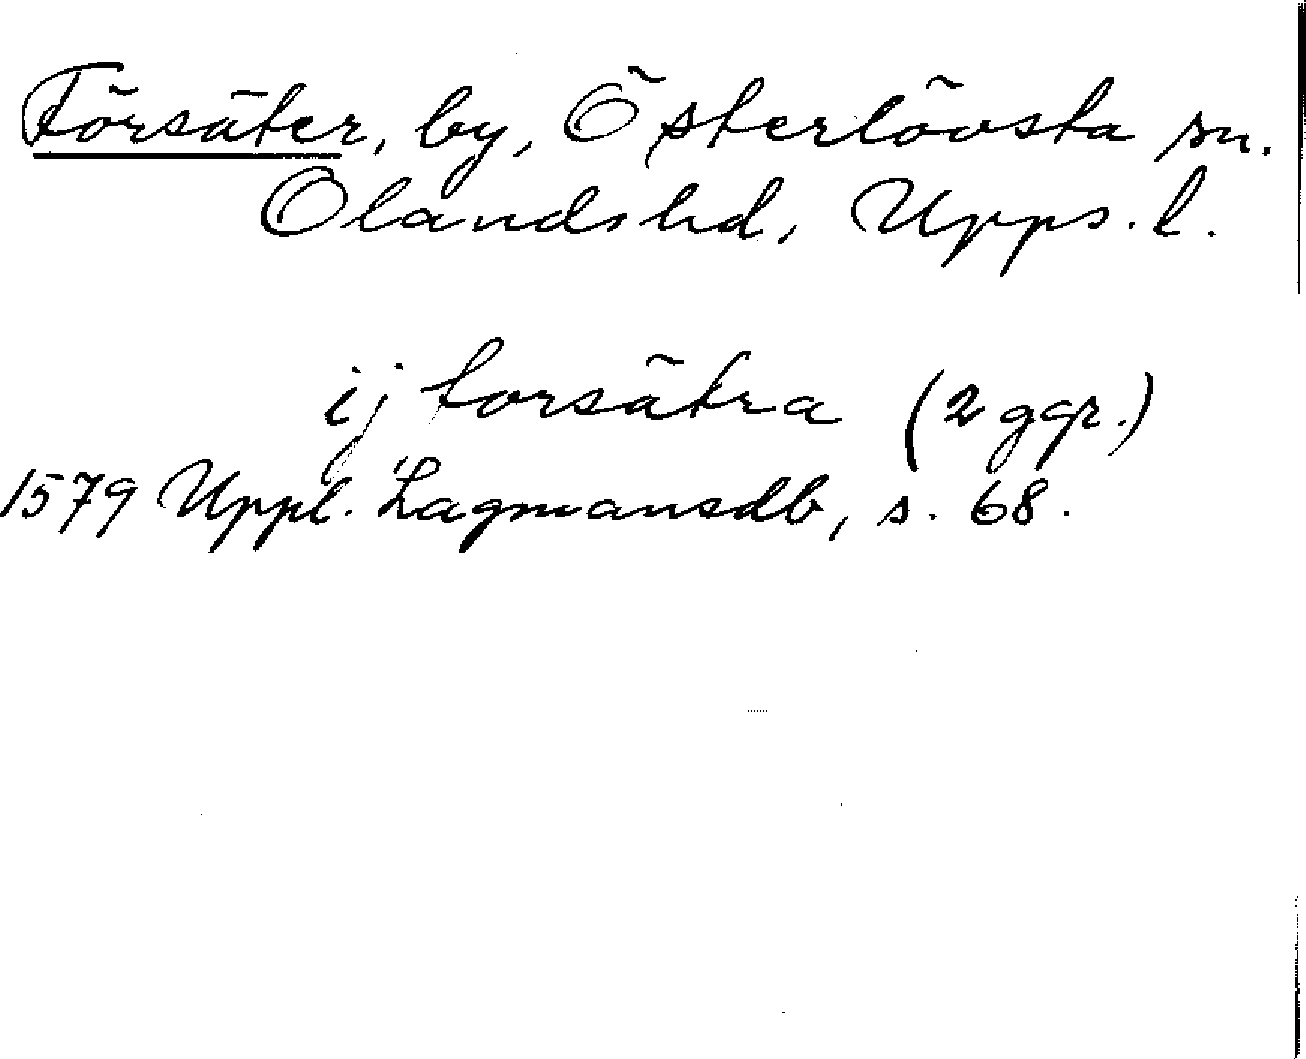 Försäter, by, Österlövsta sn.
Olandshd, Upps. l.
ij torsätra (2 ggr.)
1579 Uppl. Lagmansdb, s. 68.